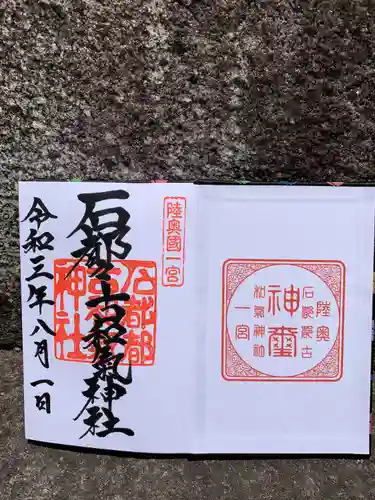 陸奥國一宮
石都々古和氣神社
石都都古和氣神社
令和三年八月一日
陸奥
一宮
石都都古
和氣神社
神璽